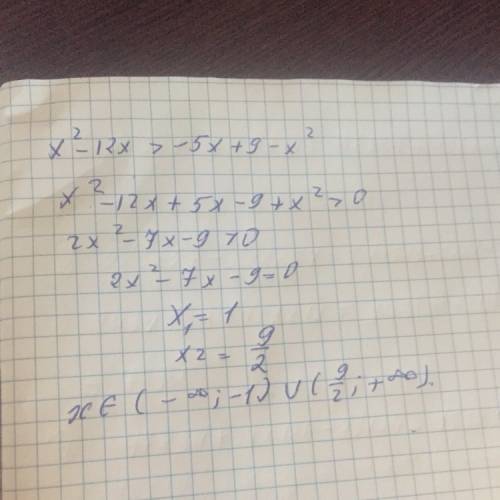 x² - 12x > -5x + 9 - x²
x² - 12x + 5x - 9 + x² > 0
2x² - 7x - 9 > 0
2x² - 7x - 9 = 0
x₁ = 1
x2 = 9/2
x ∈ (-∞; -1) ∪ (9/2; +∞).